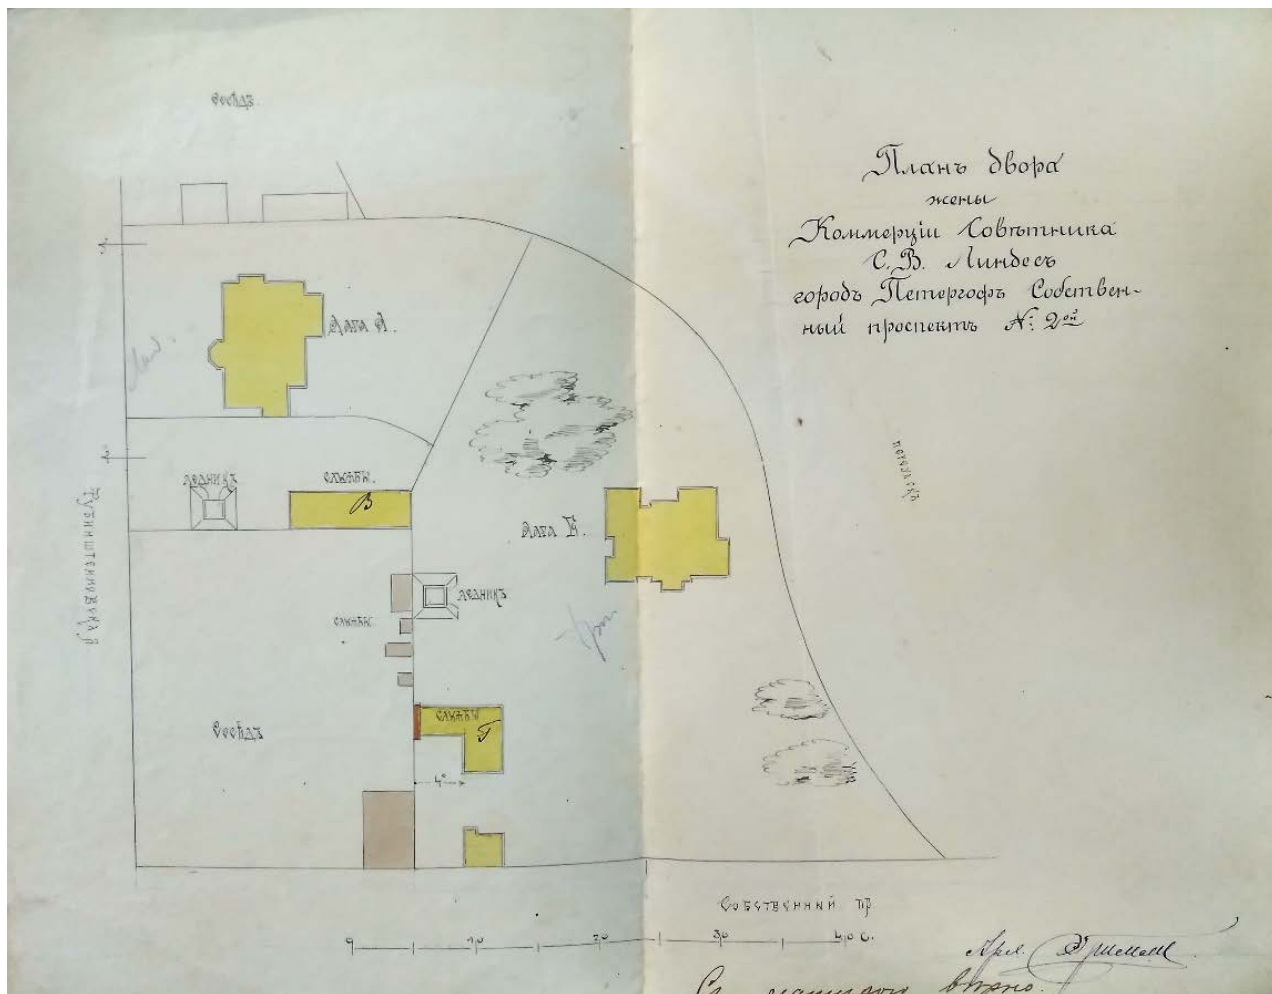 Сосѣдъ
Планъ двора
жены
Коммерціи Совѣтника
С. В. Линдесъ
городъ Петергофъ Собствен-
ный проспектъ №: 2ой
Дача А.
Ледникъ
Службы.
В
Дача Б.
Ледникъ
Службы
Службы
Г
Сосѣдъ
4°
Собственный пр.
0 10 20 30 40 С.
Съ вѣрно.